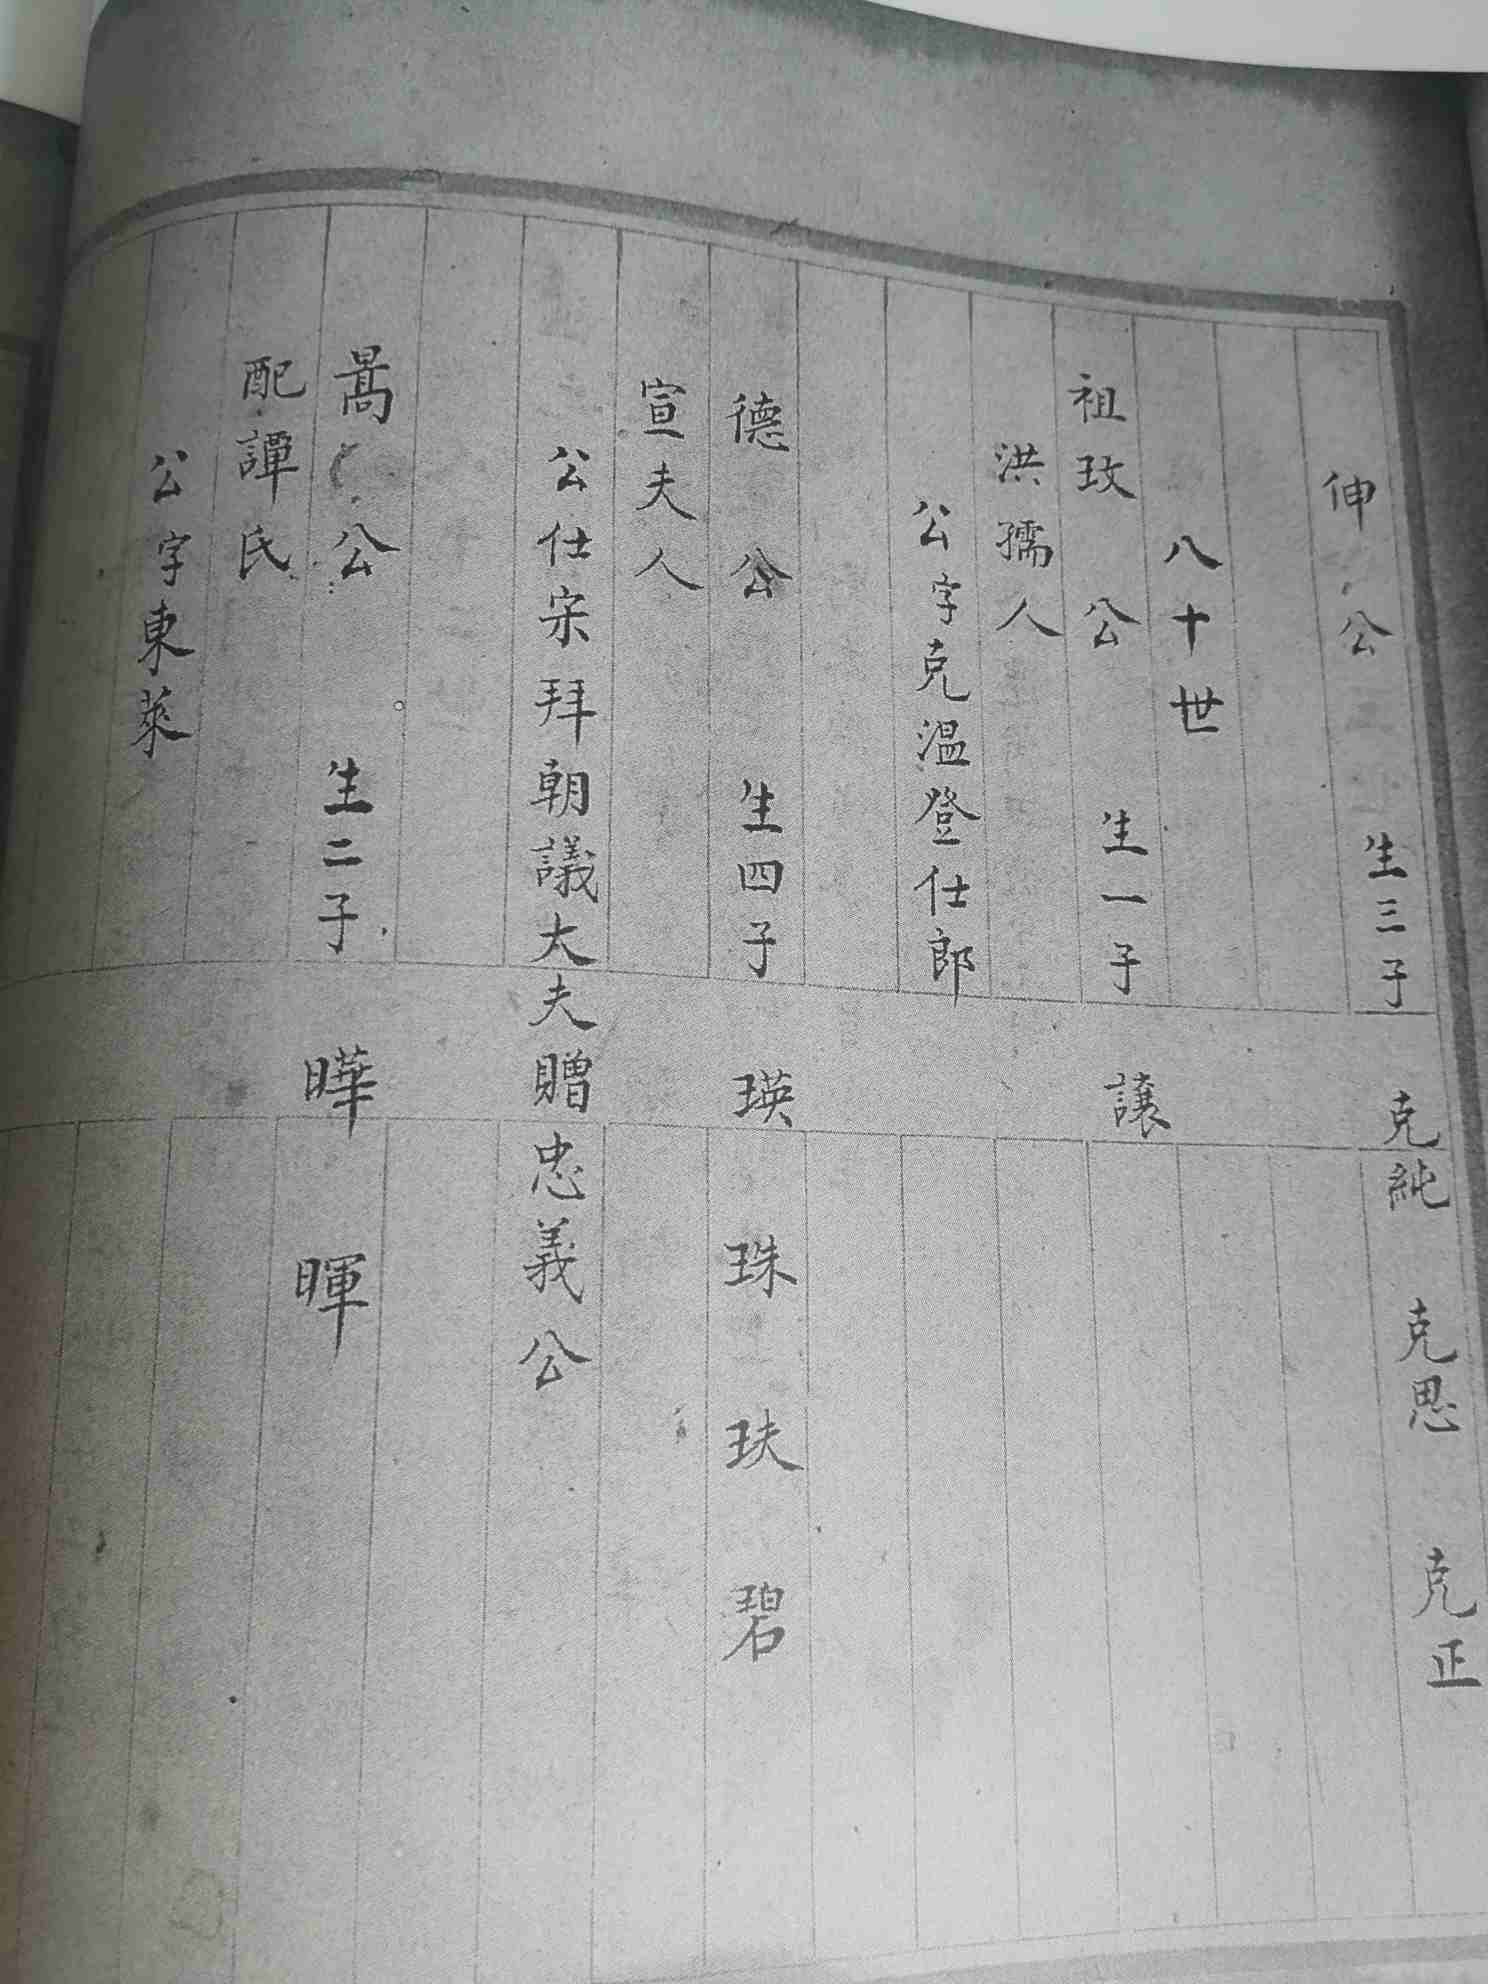 伸公 生三子 克純 克思 克正
八十世
祖玫公 生一子 讓
洪孺人
公字克温登仕郎
德公 生四子 瑛 珠 玞 碧
宣夫人
公仕宋拜朝議大夫贈忠義公
暠公 生二子 曄 暉
配譚氏
公字東萊